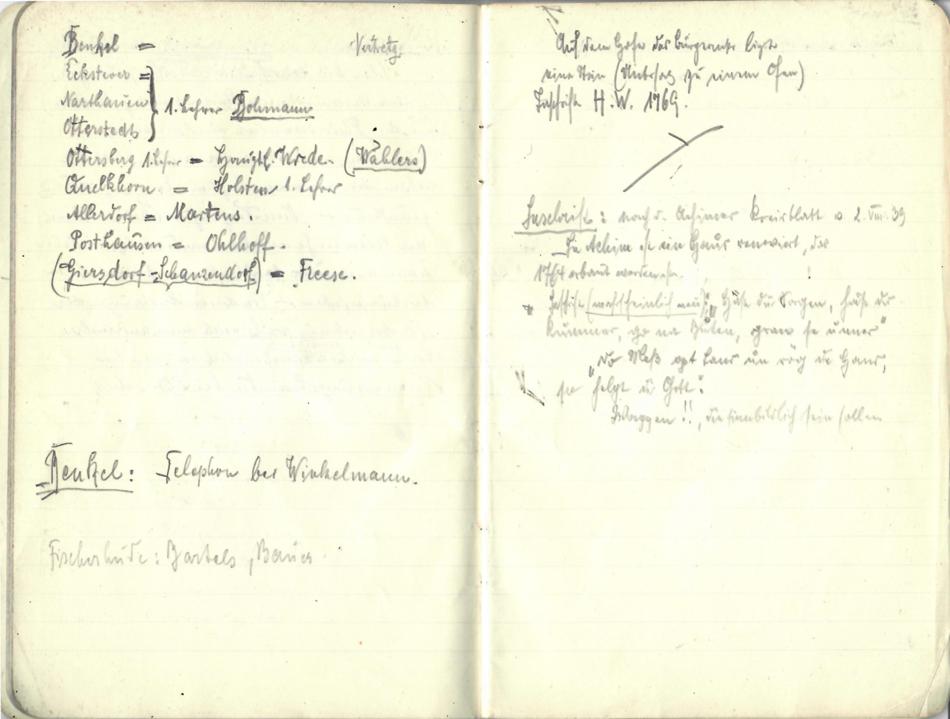 Benkel =
Vertretg.
Eckstever =
Narthauen
1. Lehrer Bohmann
Otterstedt
Ottersberg 1. Lehrer = Hauptl. Wrede. (Wahlers)
Quelkhorn = Holsten 1. Lehrer
Allerdorf = Martens.
Posthausen = Ohlhoff.
(Giersdorf-Schanzendorf) = Freese.
Benkel: Telephon bei Winkelmann.
Fischerhude: Bartels, Bauer
Auf dem Hofe des Bürgeramts liegt
eine Stein (Untersatz zu einem Ofen)
Inschrift H. W. 1769.
Inschrift: nach d. Achimer Kreisblatt v. 2. VIII. 39
In Achim ist ein Haus renoviert, das
1764 erbaut
Inschrift (wahrscheinlich neu): „ du Sorgen,
Kummer, go na
un Haus,
so folgt Gott:
Wappen!!, die sinnbildlich sein sollen